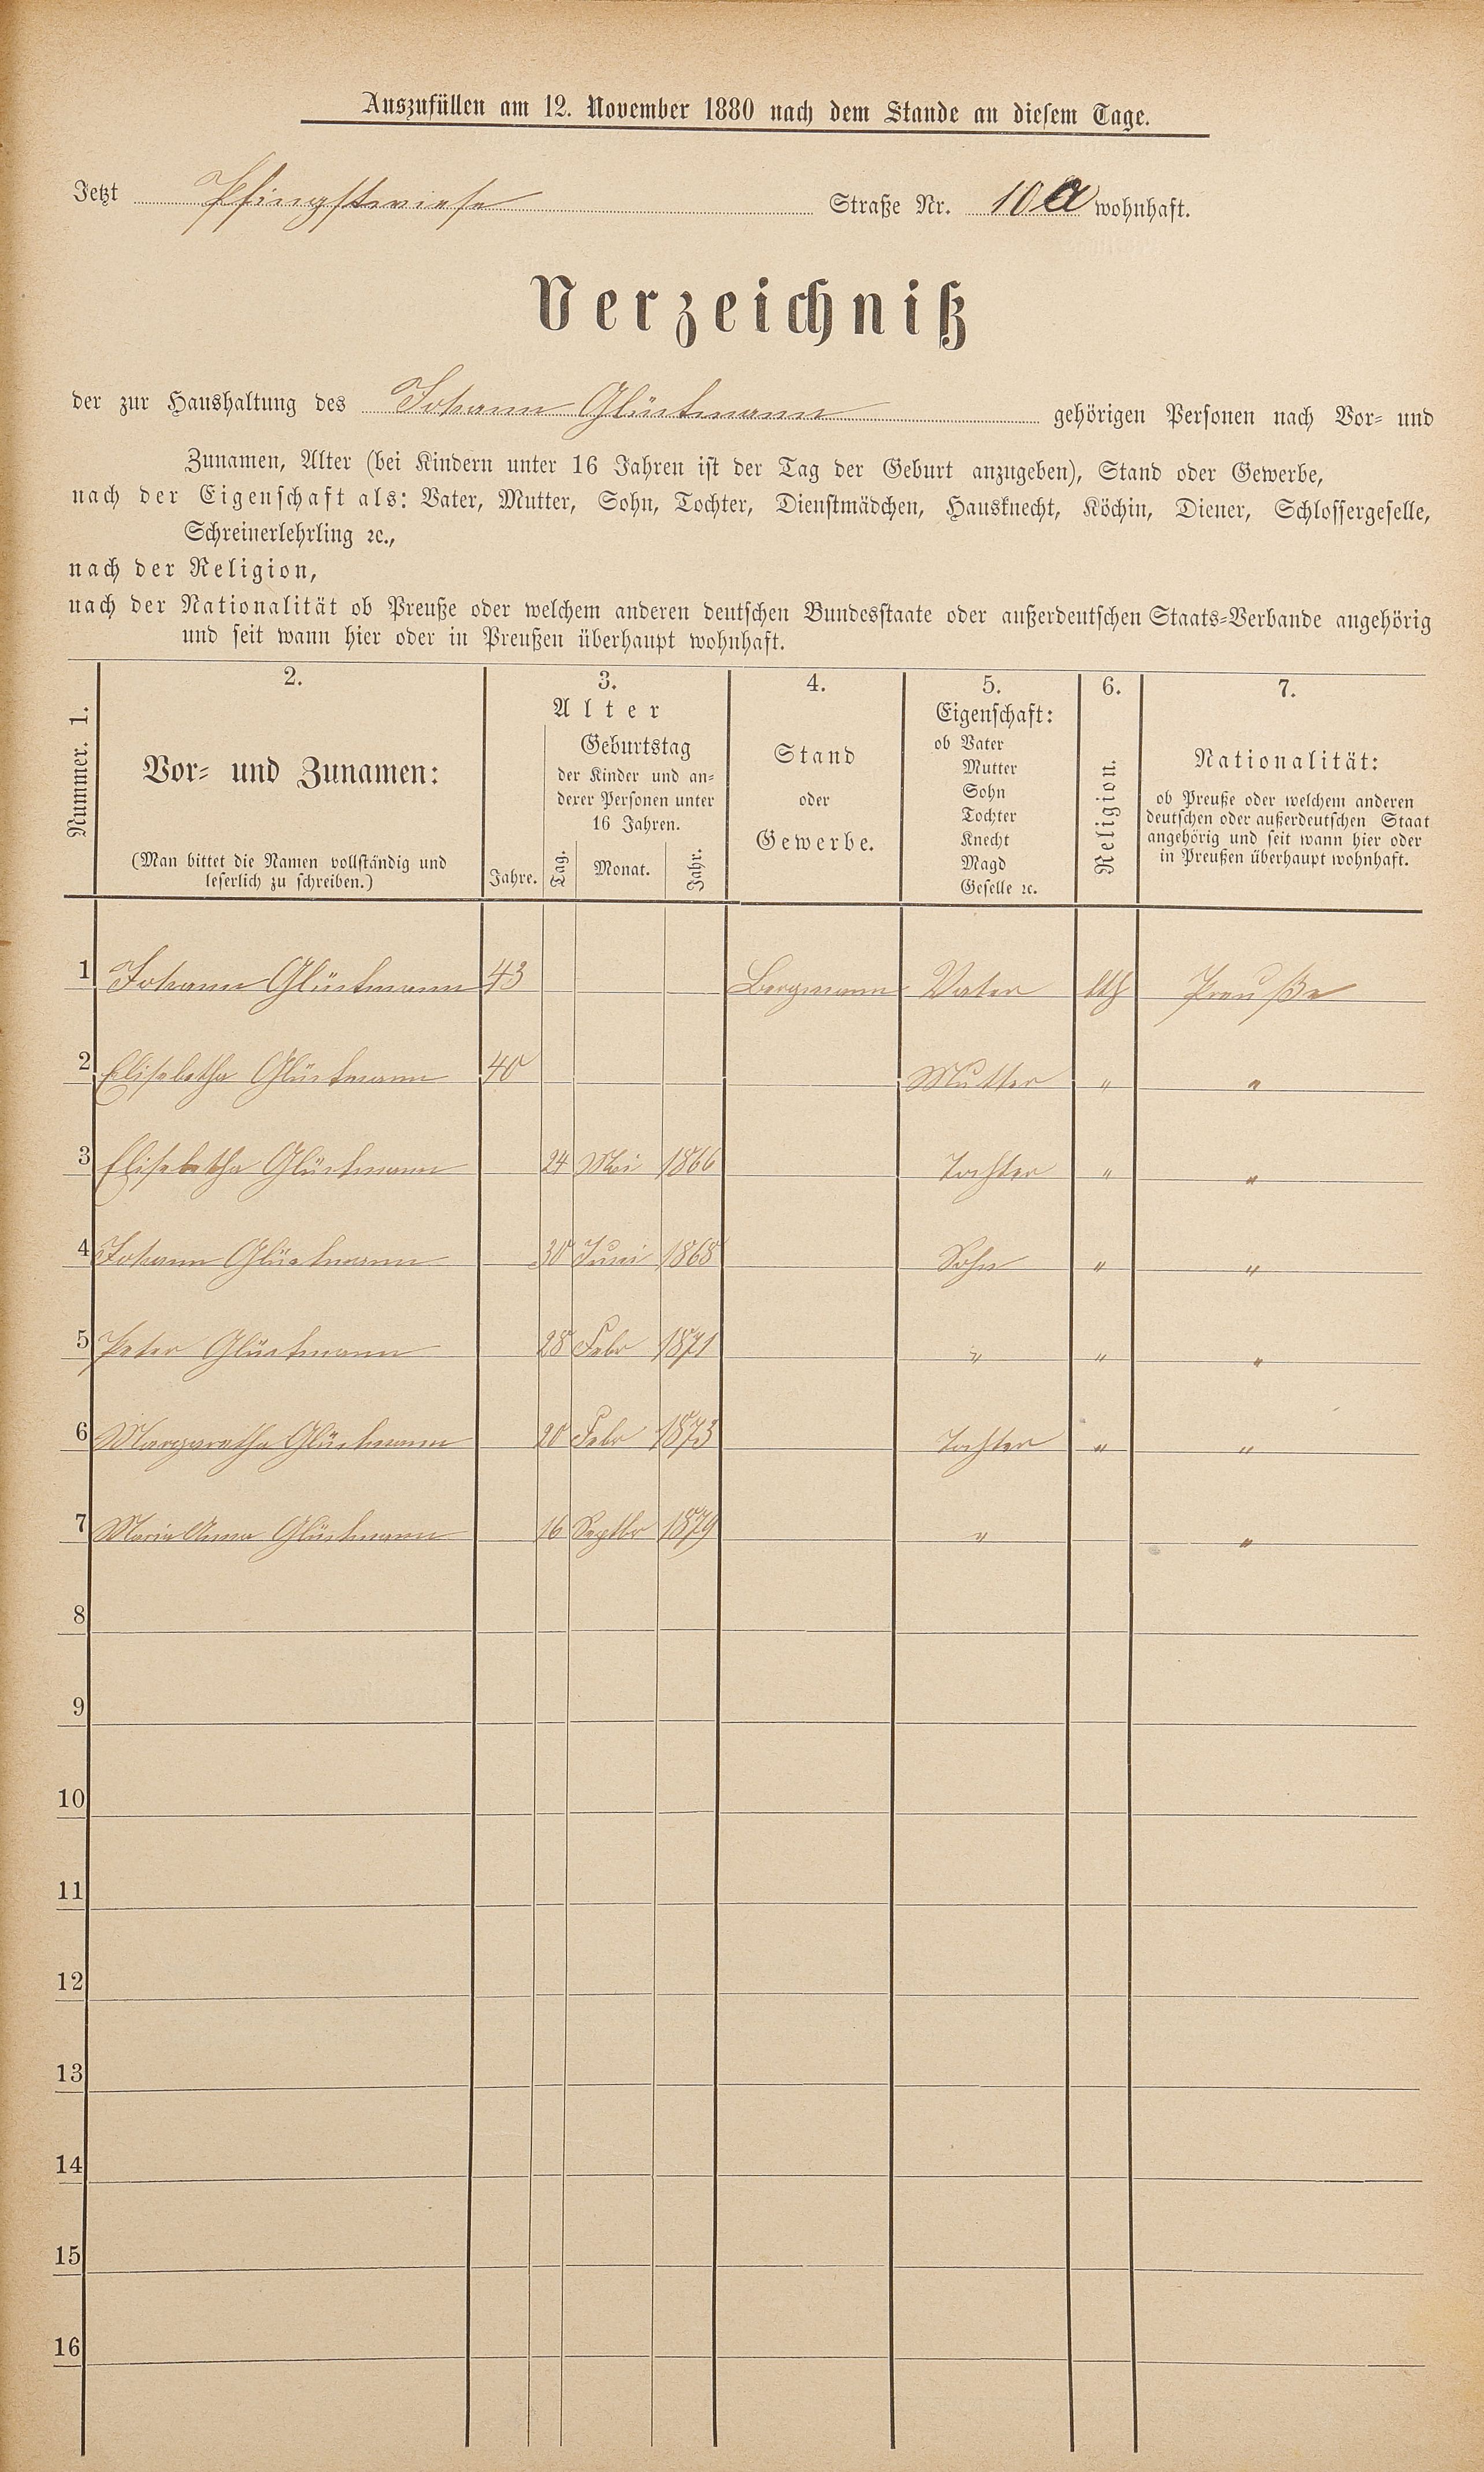 Auszufüllen am 12. November 1880 nach dem Stande an diesem Tage.
Jetzt Pfingstwiese Straße Nr. 10a wohnhaft.
Verzeichniß
der zur Haushaltung des Johann Glückmann gehörigen Personen nach Vor- und
Zunamen, Alter (bei Kindern unter 16 Jahren ist der Tag der Geburt anzugeben), Stand oder Gewerbe,
nach der Eigenschaft als: Vater, Mutter, Sohn, Tochter, Dienstmädchen, Hausknecht, Köchin, Diener, Schlossergeselle,
Schreinerlehrling ꝛc.,
nach der Religion,
nach der Nationalität ob Preuße oder welchem anderen deutschen Bundesstaate oder außerdeutschen Staats-Verbande angehörig
und seit wann hier oder in Preußen überhaupt wohnhaft.
Nummer. 1.
2.
Vor- und Zunamen:
(Man bittet die Namen vollständig und
leserlich zu schreiben.)
3.
Alter
Jahre.
Geburtstag
der Kinder und an-
derer Personen unter
16 Jahren.
Tag. Monat. Jahr.
4.
Stand
oder
Gewerbe.
5.
Eigenschaft:
ob Vater
Mutter
Sohn
Tochter
Knecht
Magd
Geselle ꝛc.
6.
Religion.
7.
Nationalität:
ob Preuße oder welchem anderen
deutschen oder außerdeutschen Staat
angehörig und seit wann hier oder
in Preußen überhaupt wohnhaft.
1 Johann Glückmann 43 Bergmann Vater kth Preuße
2 Elisabetha Glückmann 40 Mutter " "
3 Elisabetha Glückmann 24 Mai 1866 Tochter " "
4 Johann Glückmann 30 Juni 1868 Sohn " "
5 Peter Glückmann 28 Febr 1871 " " "
6 Margaretha Glückmann 20 Febr 1873 Tochter " "
7 Maria Anna Glückmann 16 Septbr 1879 " "
8
9
10
11
12
13
14
15
16